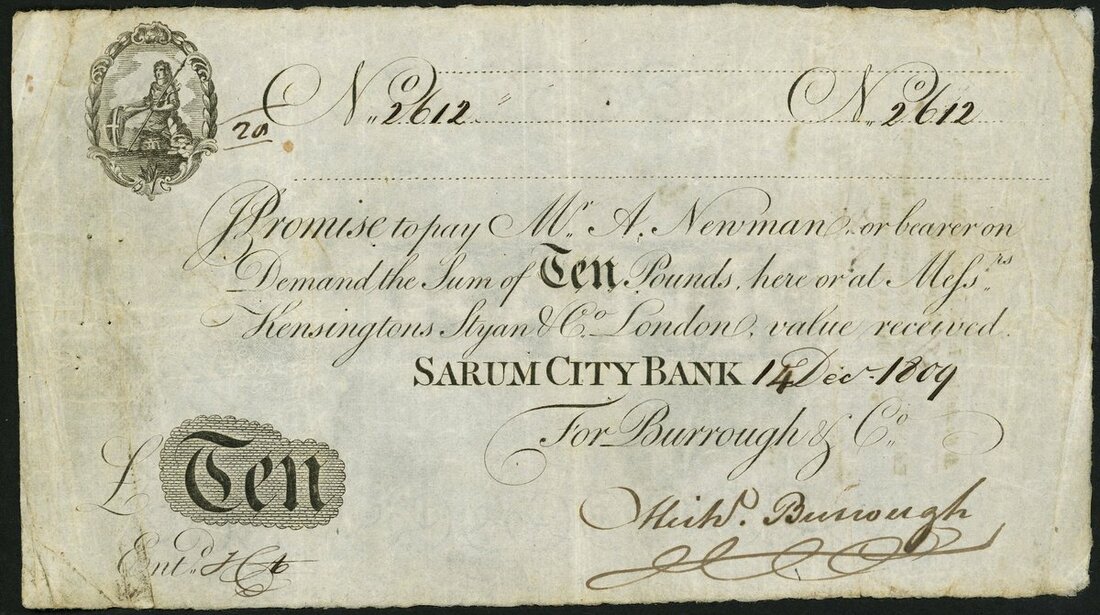 No 2612 No 2612
I Promise to pay Mr. A. Newman or bearer on
Demand the Sum of Ten Pounds, here or at Messrs
Kensingtons Styan & Co. London, value received.
SARUM CITY BANK 14 Decr 1809
For Burrough & Co
£ Ten
Michl. Burrough
Entd